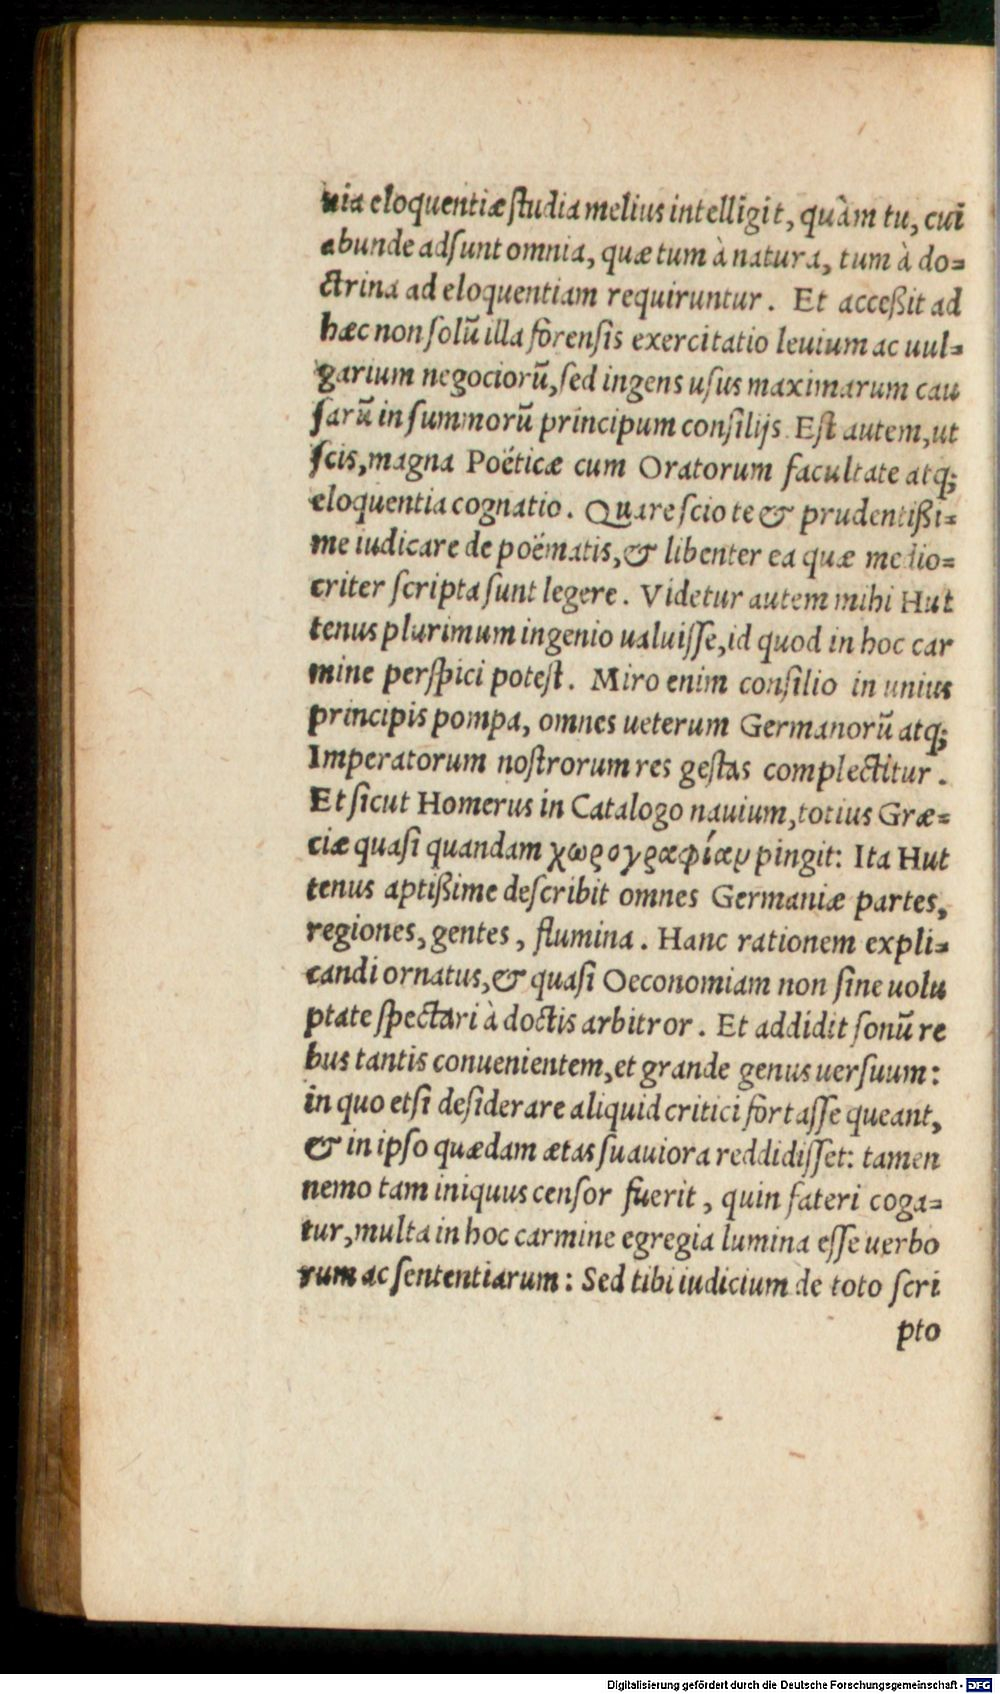 uia eloquentiæ ſtudia melius intelligit, quàm tu, cui
abunde adſunt omnia, quæ tum à natura, tum à do-
ctrina ad eloquentiam requiruntur. Et acceßit ad
hæc non ſolũ illa forenſis exercitatio leuium ac uul-
garium negociorũ, ſed ingens uſus maximarum cau
ſarũ in ſummorũ principum conſilijs. Eſt autem, ut
ſcis, magna Poëticæ cum Oratorum facultate atq;
eloquentia cognatio. Quare ſcio te & prudentißi-
me iudicare de poëmatis, & libenter ea quæ medio-
criter ſcripta ſunt legere. Videtur autem mihi Hut
tenus plurimum ingenio ualuiſſe, id quod in hoc car
mine perſpici poteſt. Miro enim conſilio in unius
principis pompa, omnes ueterum Germanorũ atq;
Imperatorum noſtrorum res geſtas complectitur.
Et ſicut Homerus in Catalogo nauium, totius Græ-
ciæ quaſi quandam χωρογραφίαν pingit: Ita Hut
tenus aptißime deſcribit omnes Germaniæ partes,
regiones, gentes, flumina. Hanc rationem expli-
candi ornatus, & quaſi Oeconomiam non ſine uolu
ptate ſpectari à doctis arbitror. Et addidit ſonũ re
bus tantis conuenientem, et grande genus uerſuum:
in quo etſi deſiderare aliquid critici fortaſſe queant,
& in ipſo quædam ætas ſuauiora reddidiſſet: tamen
nemo tam iniquus cenſor fuerit, quin fateri coga-
tur, multa in hoc carmine egregia lumina eſſe uerbo
rum ac ſententiarum: Sed tibi iudicium de toto ſcri
pto
Digitalisierung gefördert durch die Deutsche Forschungsgemeinschaft - DFG